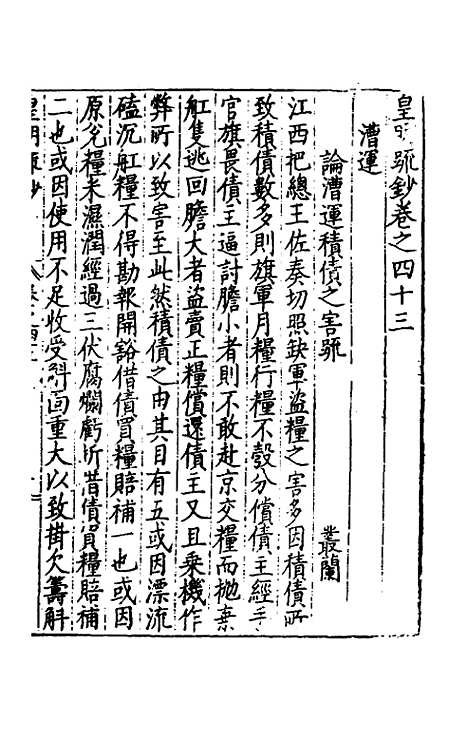 皇明疏鈔卷之四十三
漕運
論漕運積債之害疏 叢蘭
江西把總王佐奏切照缺軍盜糧之害多因積債所
致積債數多則旗軍月糧行糧不彀分償債主經手
官旗畏債主逼討膽小者則不敢赴京交糧而拋棄
舡隻逃回膽大者盜賣正糧償還債主又且乘機作
弊所以致害至此然積債之由其目有五或因漂流
磕沉舡糧不得勘報開豁借債買糧賠補一也或因
原兌糧米濕潤經過三伏腐爛虧折借債買糧賠補
二也或因使用不足收受斛面重大以致掛欠籌斛
皇明疏鈔